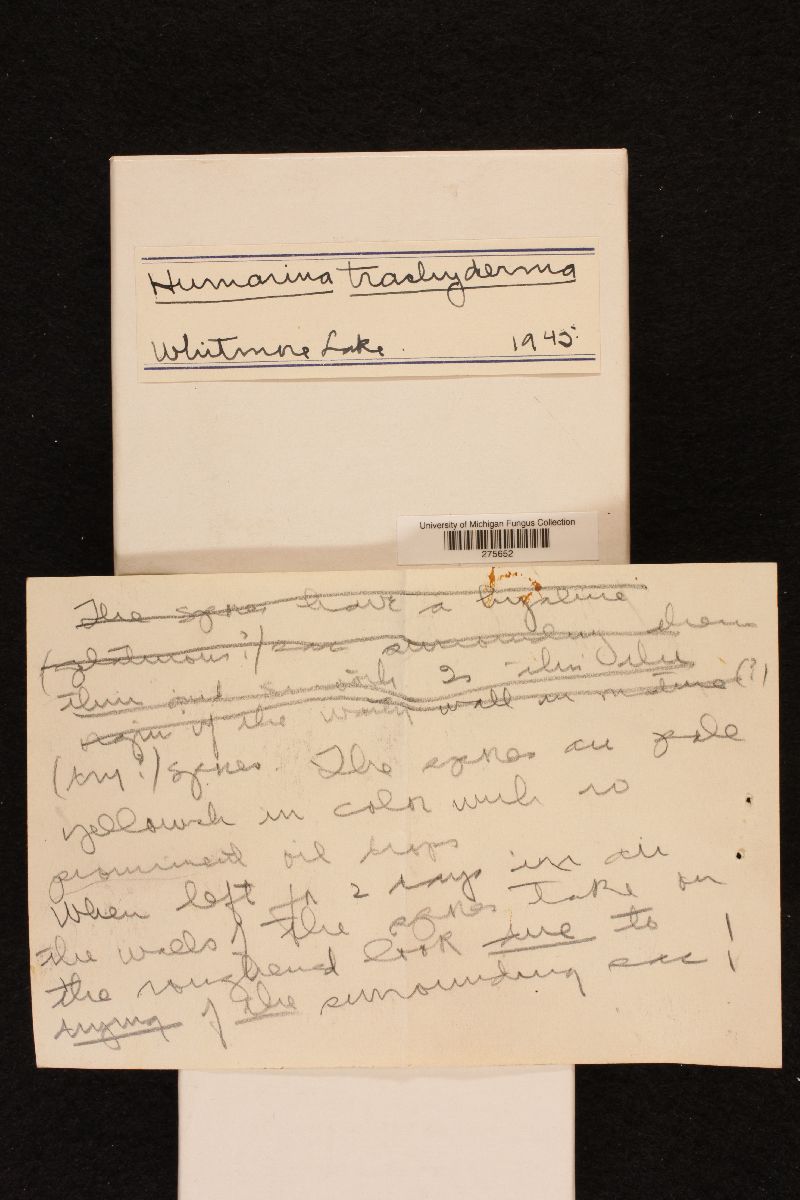 Humarina trachyderma
Whitmore Lake. 1945.
University of Michigan Fungus Collection
275652
The spores have a hyaline
(gelatinous?) sac surrounding them
thin and smooth Is this the
origin of the warty wall in mature (?)
(dry?) spores. The spores are pale
yellowish in color with no
prominent oil drops
When left for 2 days in air
the walls of the spores take on
the roughened look due to
drying of the surrounding sac!